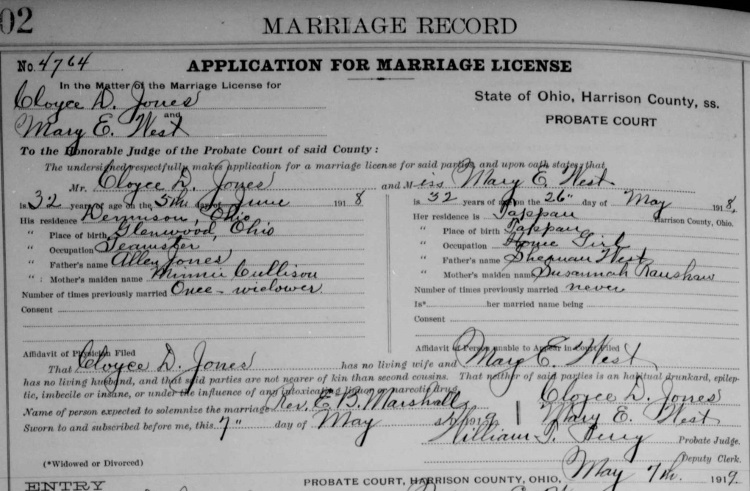 02
MARRIAGE RECORD
No. 4764 APPLICATION FOR MARRIAGE LICENSE
In the Matter of the Marriage License for
Cloyce D. Jones
and
Mary E. West
State of Ohio, Harrison County, ss.
PROBATE COURT
To the Honorable Judge of the Probate Court of said County:
The undersigned respectfully makes application for a marriage license for said parties and upon oath states that
Mr. Cloyce D. Jones and Miss Mary E. West
is 32 years of age on the 5th day of June 1918
His residence Dennison, Ohio
" Place of birth Glenwood, Ohio
" Occupation Teamster
" Father's name Allen Jones
" Mother's maiden name Minnie Cullison
Number of times previously married Once - widower
Consent
is 32 years of age on the 26" day of May 1918,
Her residence is Tappan Harrison County, Ohio.
" Place of birth Tappan
" Occupation Home Girl
" Father's name Sherman West
" Mother's maiden name Susannah
Number of times previously married never
Is* her married name being
Consent
Affidavit of Physician Filed
Affidavit of Person unable to Appear in Court Filed
That Cloyce D. Jones has no living wife and Mary E. West
has no living husband, and that said parties are not nearer of kin than second cousins. That neither of said parties is an habitual drunkard, epilep-
tic, imbecile or insane, or under the influence of any intoxicating liquor or narcotic drug.
Name of person expected to solemnize the marriage Rev. E. B. Marshall
Cloyce D. Jones
Mary E. West
Sworn to and subscribed before me, this 7" day of May 1919
William T. Perry Probate Judge.
Deputy Clerk.
(*Widowed or Divorced)
ENTRY
PROBATE COURT, HARRISON COUNTY, OHIO, May 7th. 1919.